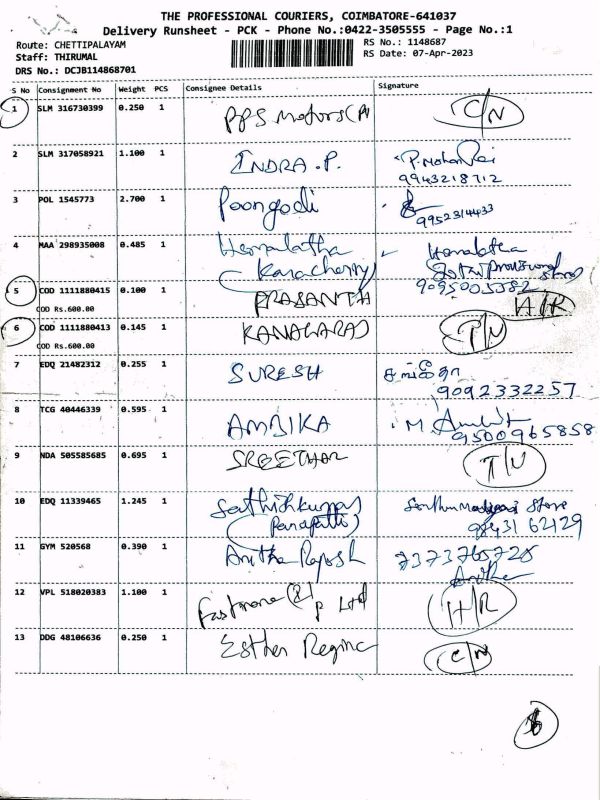 THE PROFESSIONAL COURIERS, COIMBATORE-641037
Delivery Runsheet - PCK - Phone No.:0422-3505555 - Page No.:1
Route: CHETTIPALAYAM
RS No.: 1148687
Staff: THIRUMAL
RS Date: 07-Apr-2023
DRS No.: DCJB114868701
S No Consignment No Weight PCS Consignee Details Signature
1 SLM 316730399 0.250 1 PPS Motors (P) C/N
2 SLM 317058921 1.100 1 INDRA .P. P. Mohan
9943218712
3 POL 1545773 2.700 1 Poongodi
9952314433
4 MAA 298935008 0.485 1 Hemalatha Hemalatha
(Karacherry)
9095005382
5 COD 1111880415 0.100 1 PRASANTH A/R
COD Rs.600.00
6 COD 1111880413 0.145 1 KANAGARAJ
COD Rs.600.00
7 EDQ 21482312 0.255 1 SURESH சங்கீதா
9092332257
8 TCG 40446339 0.595 1 AMBIKA M
9500965858
9 NDA 505585685 0.695 1 SREETHAR
10 EDQ 11339465 1.245 1 Sathishkumar Store
98431 62129
11 GYM 520568 0.390 1 Anitha 7373765728
Anitha
12 VPL 518020383 1.100 1 P Ltd H/R
13 DDG 48106636 0.250 1 Esther Regina C/N